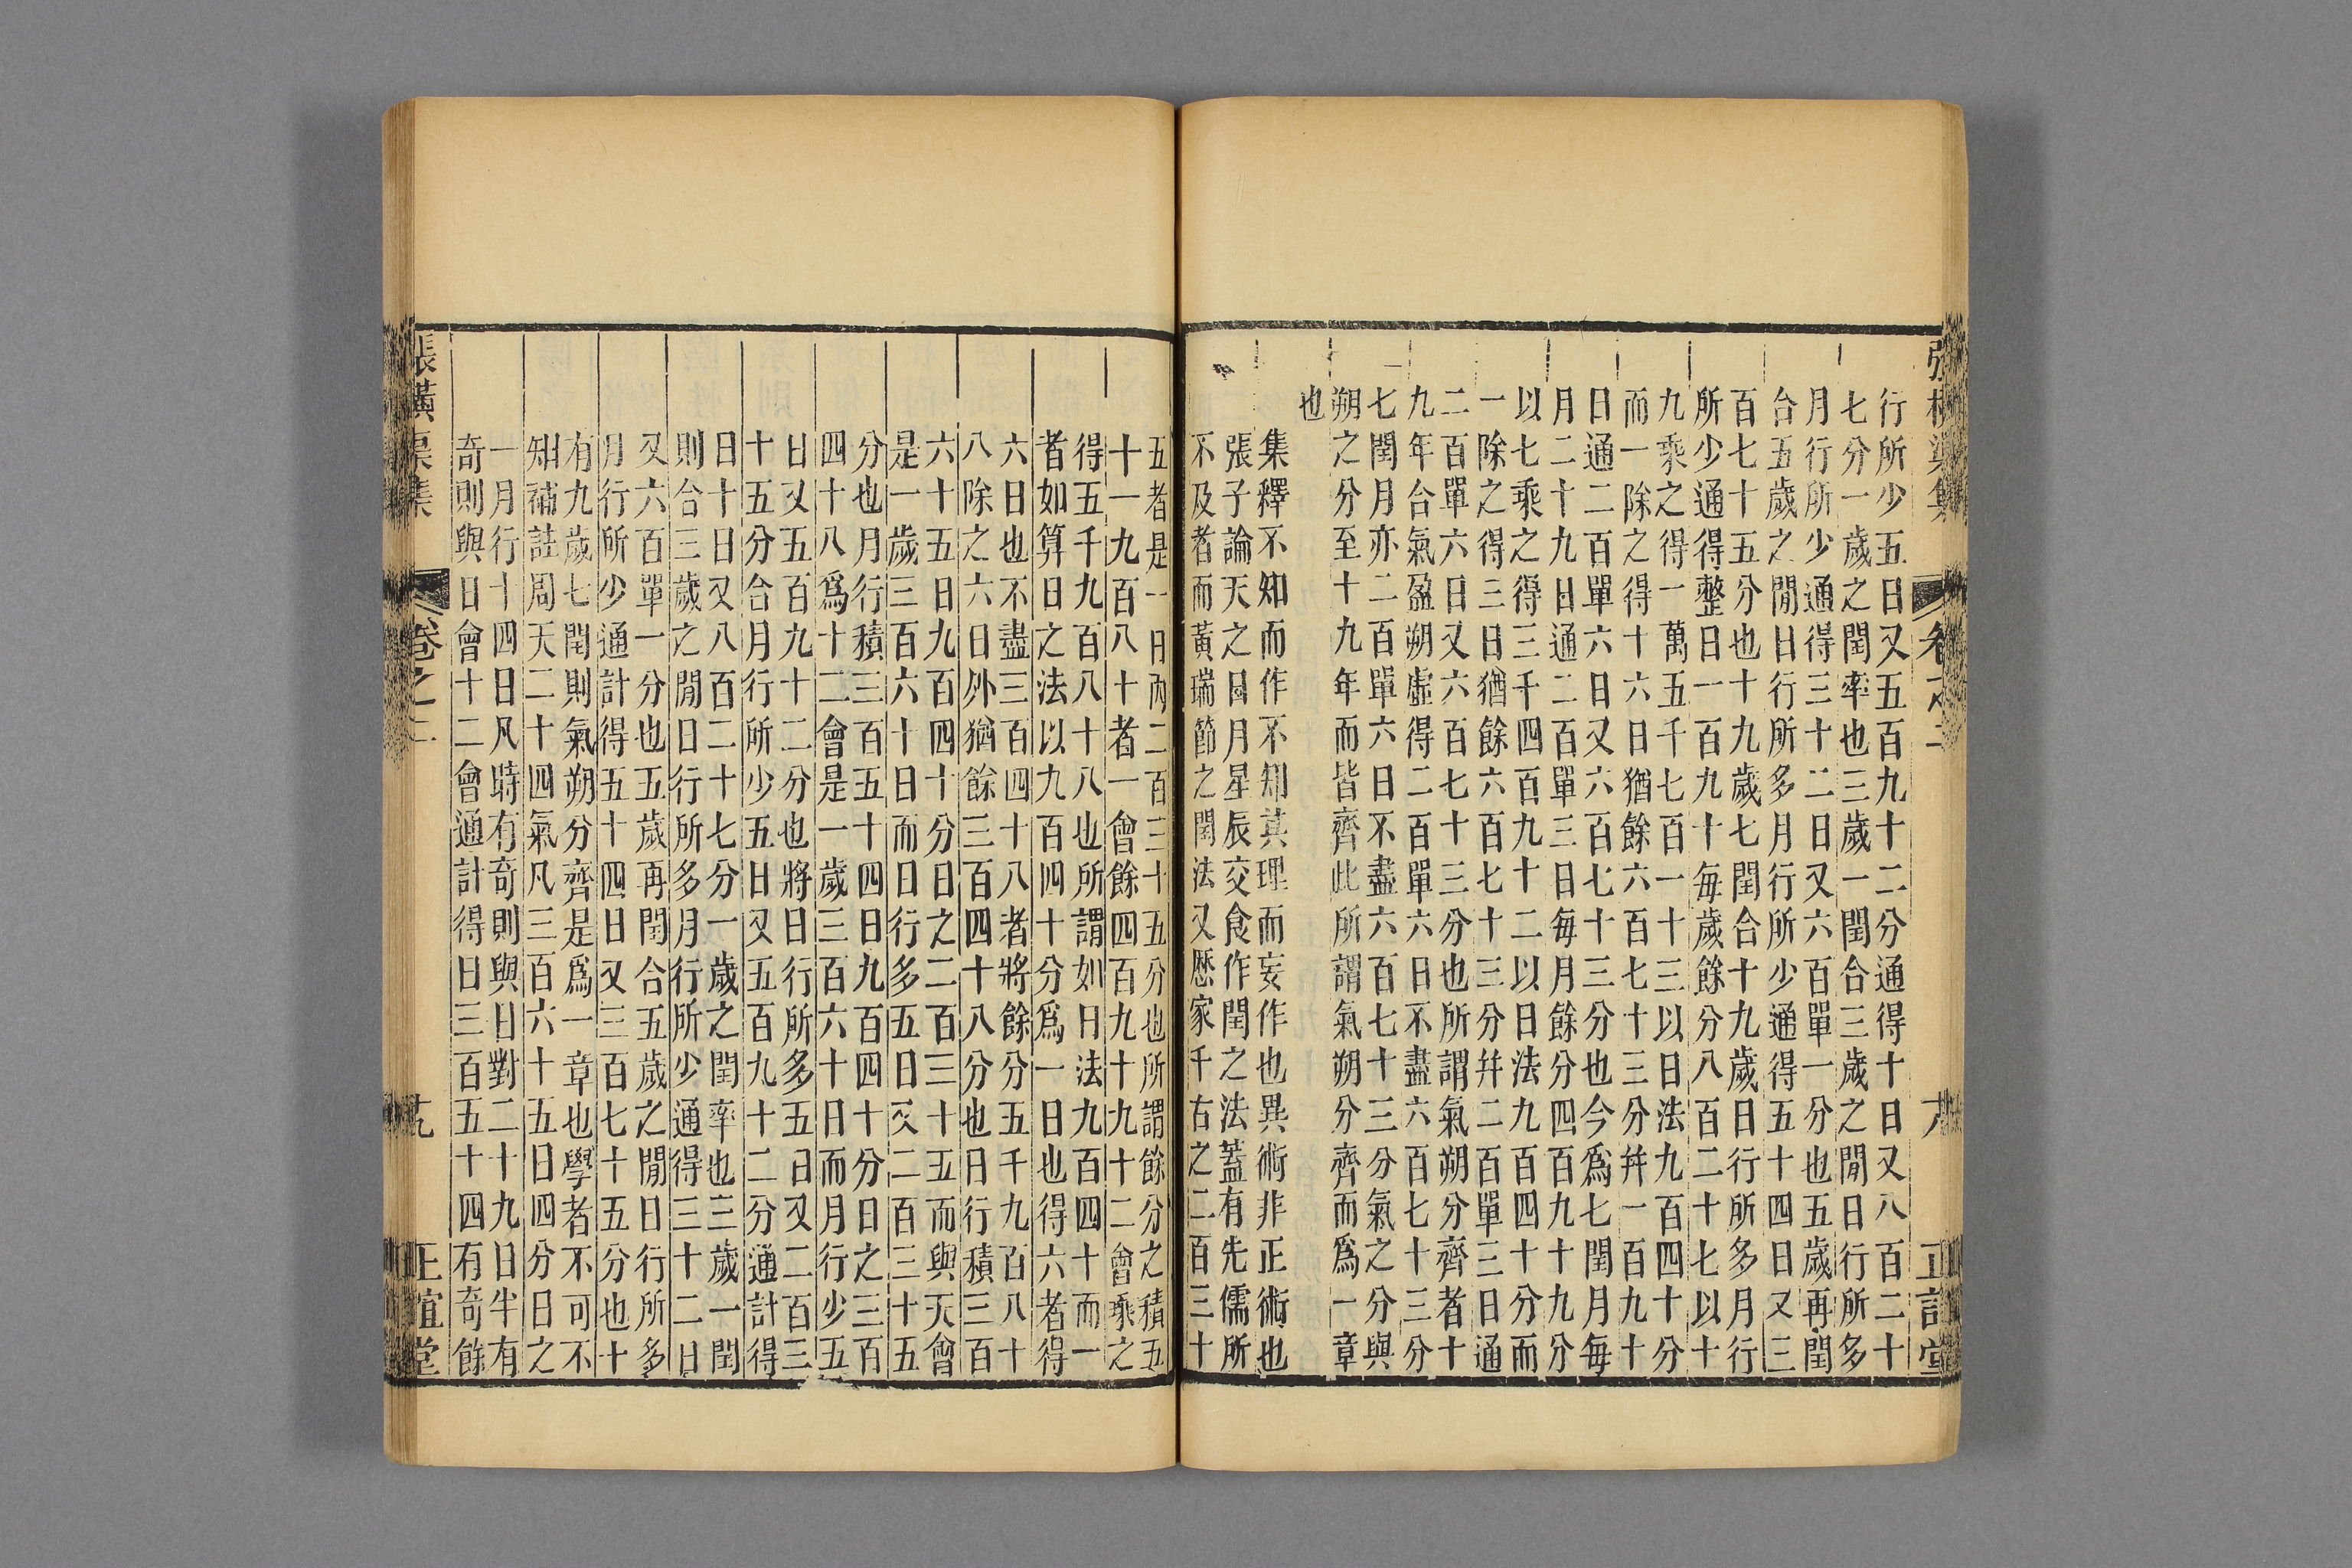 張橫渠集 卷之二 六 正誼堂
行所少五日又五百九十二分通得十日又八百二十
七分一歲之閏率也三歲一閏合三歲之閒日行所多
月行所少通得三十二日又六百單一分也五歲再閏
合五歲之閒日行所多月行所少通得五十四日又三
百七十五分也十九歲七閏合十九歲日行所多月行
所少通得整日一百九十每歲餘分八百二十七以十
九乘之得一萬五千七百一十三以日法九百四十分
而一除之得十六日猶餘六百七十三分并一百九十
日通二百單六日又六百七十三分也今爲七閏月每
月二十九日通二百單三日每月餘分四百九十九分
以七乘之得三千四百九十二以日法九百四十分而
一除之得三日猶餘六百七十三分并二百單三日通
二百單六日又六百七十三分也所謂氣朔分齊者十
九年合氣盈朔虛得二百單六日不盡六百七十三分
七閏月亦二百單六日不盡六百七十三分氣之分與
朔之分至十九年而皆齊此所謂氣朔分齊而爲一章
也
集釋不知而作不知其理而妄作也異術非正術也
張子論天之日月星辰交食作閏之法蓋有先儒所
不及者而黃瑞節之閏法又厯家千古之二百三十
五者是一日內二百三十五分也所謂餘分之積五
十一九百八十者一會餘四百九十九十二會乘之
得五千九百八十八也所謂如日法九百四十而一
者如算日之法以九百四十分爲一日也得六者得
六日也不盡三百四十八者將餘分五千九百八十
八除之六日外猶餘三百四十八分也日行積三百
六十五日九百四十分日之二百三十五而與天會
是一歲三百六十日而日行多五日又二百三十五
分也月行積三百五十四日九百四十分日之三百
四十八爲十二會是一歲三百六十日而月行少五
日又五百九十二分也將日行所多五日又二百三
十五分合月行所少五日又五百九十二分通計得
日十日又八百二十七分一歲之閏率也三歲一閏
則合三歲之閒日行所多月行所少通得三十二日
又六百單一分也五歲再閏合五歲之閒日行所多
月行所少通計得五十四日又三百七十五分也十
有九歲七閏則氣朔分齊是爲一章也學者不可不
知補註周天二十四氣凡三百六十五日四分日之
一月行十四日凡時有奇則與日對二十九日半有
奇則與日會十二會通計得日三百五十四有奇餘
張橫渠集 卷之二 十九 正誼堂